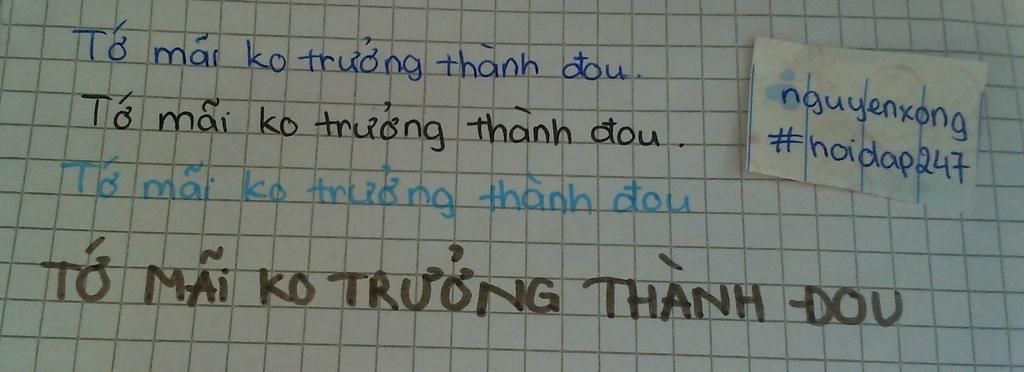 Tớ mãi ko trưởng thành đou.
Tớ mãi ko trưởng thành đou.
Tớ mãi ko trưởng thành đou
TỚ MÃI KO TRƯỞNG THÀNH ĐOU
nguyenxong
#hoidap247